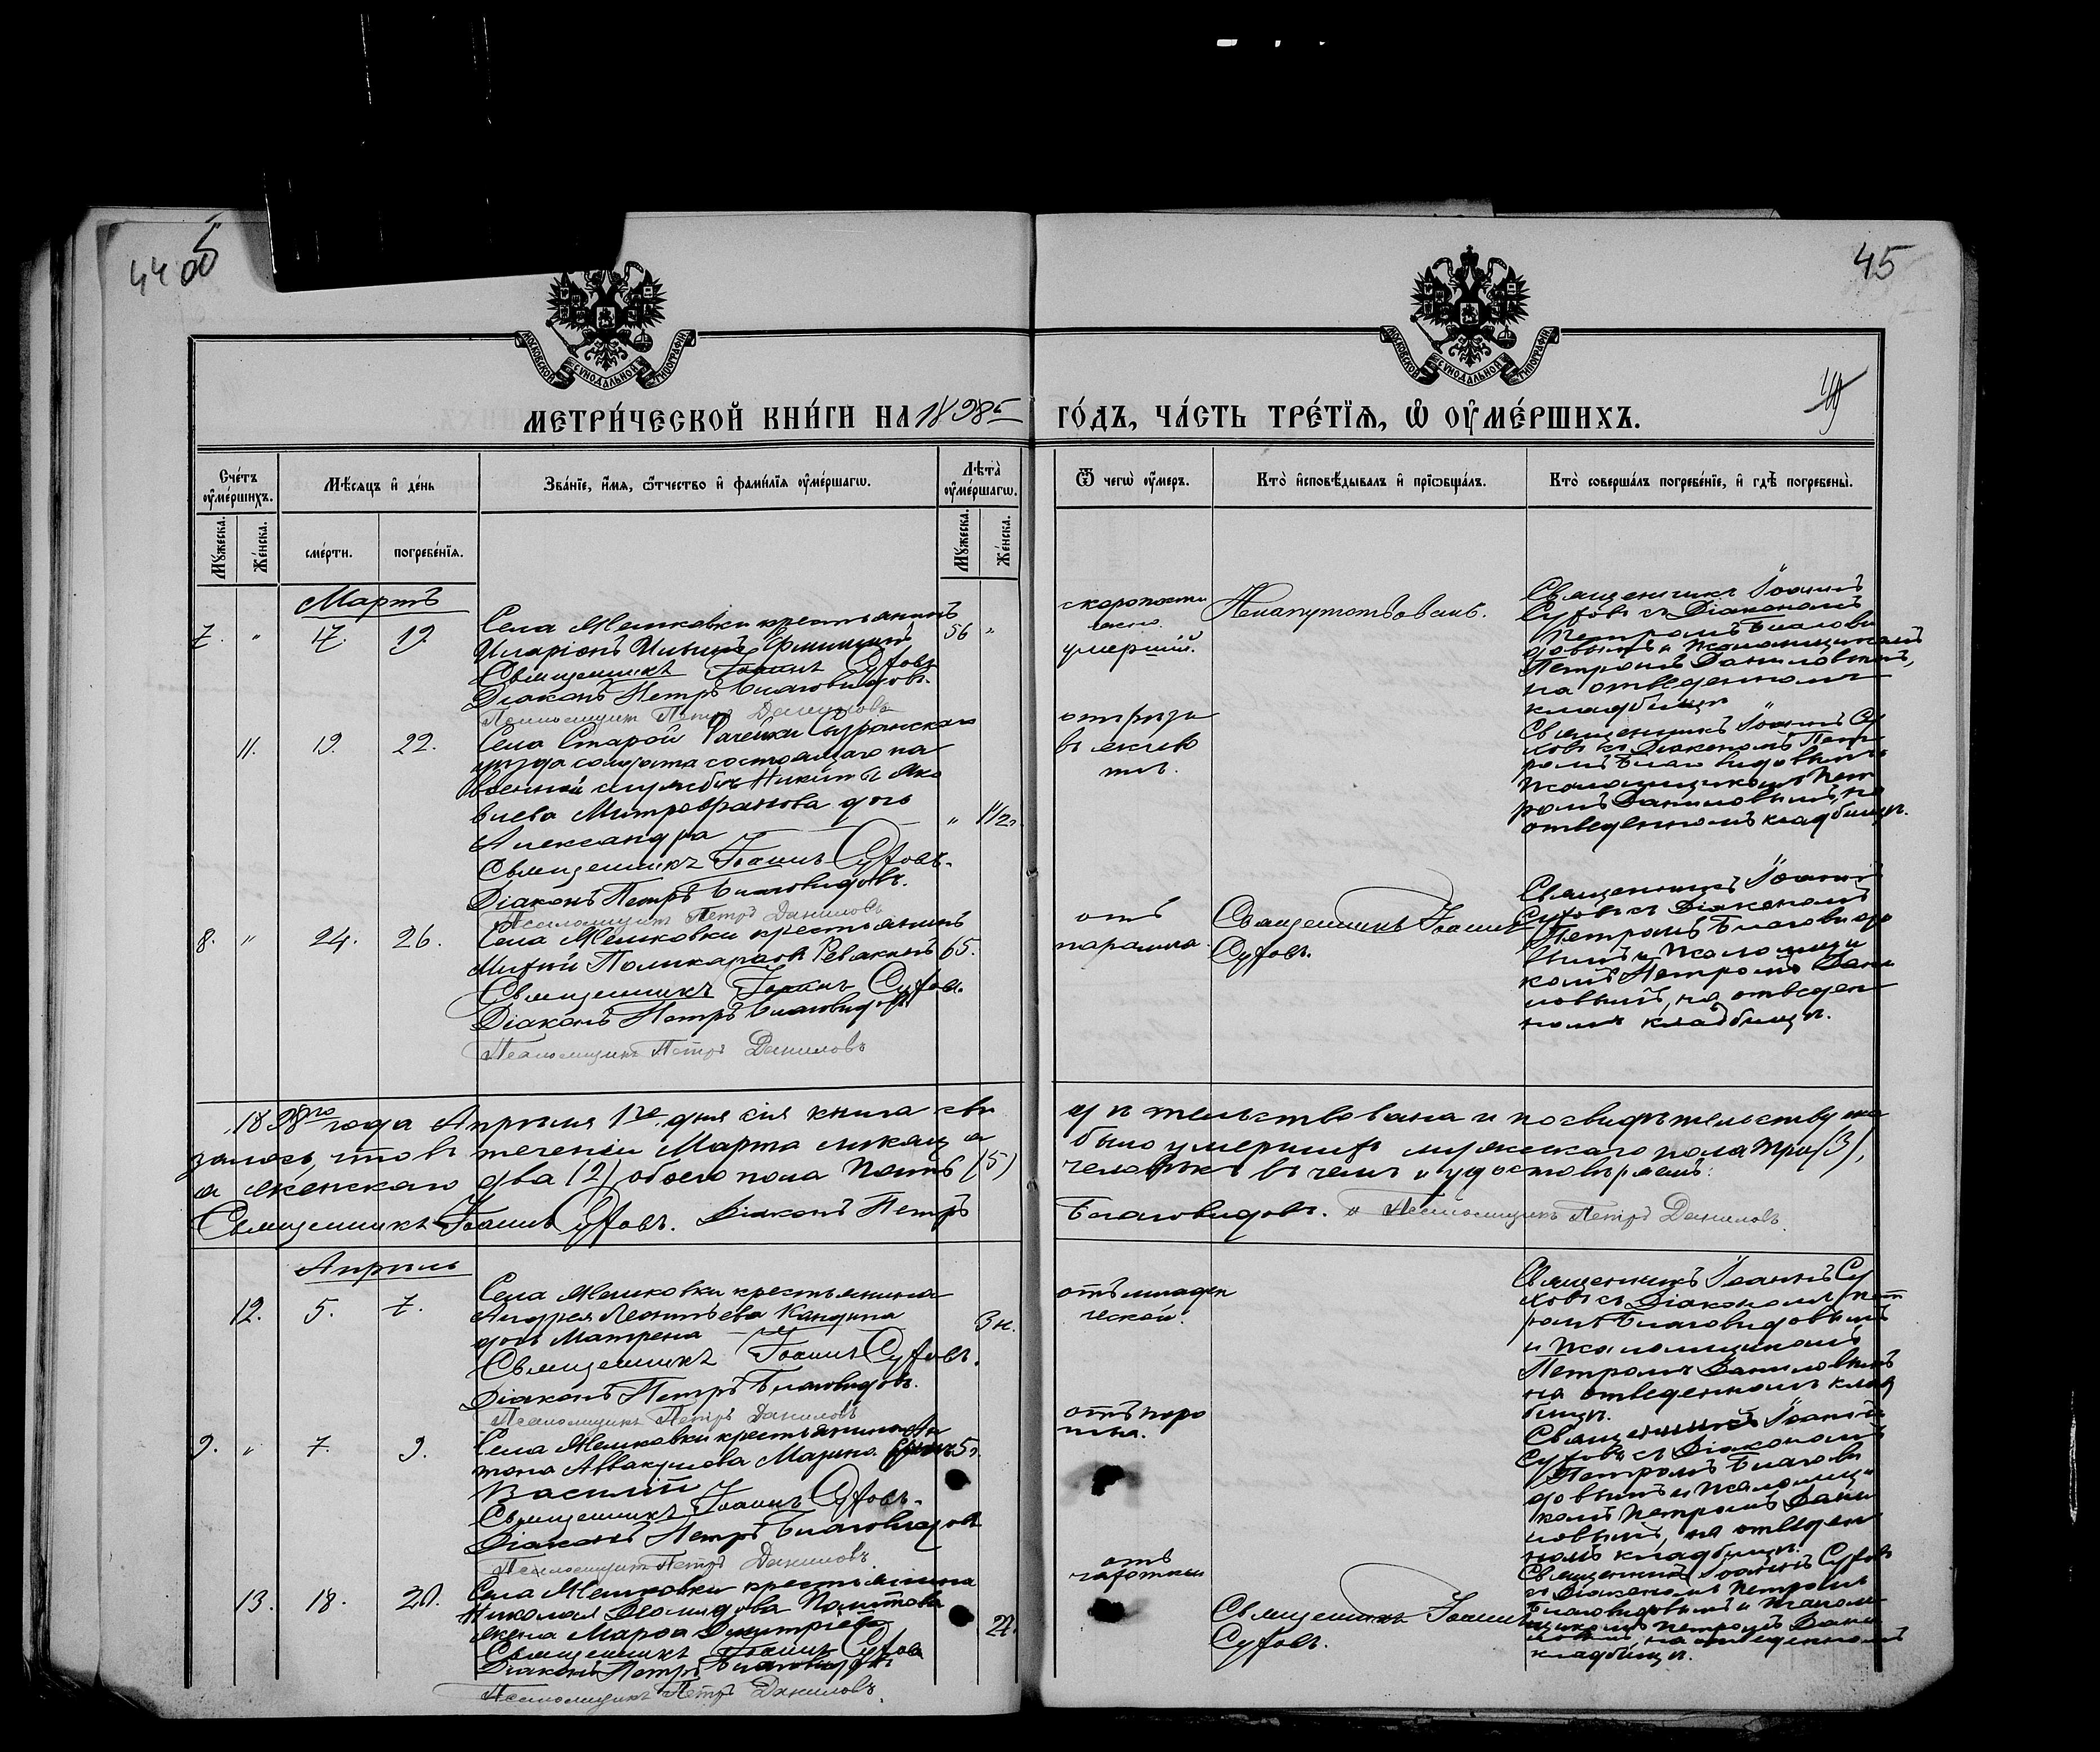 44 об
45
МОСКОВСКОЙ СѴНОДАЛЬНОЙ ТИПОГРАФІИ
МОСКОВСКОЙ СѴНОДАЛЬНОЙ ТИПОГРАФІИ
МЕТРИ́ЧЕСКОЙ КНИ́ГИ НА 1898й ГО́ДЪ, ЧА́СТЬ ТРЕ́ТІѦ, Ѽ ОУ҆МЕ́РШИХЪ.
Сче́тъ оу҆ме́ршихъ.
Мѣсѧцъ и҆ де́нь
Зва́нїе, и҆́мѧ, ѻ҆́тчество и҆ фами́лїѧ оу҆ме́ршагѡ.
Лѣта̀ оу҆ме́ршагѡ.
Ѿ чегѡ̀ оу҆́меръ.
Кто̀ и҆сповѣ́дывалъ и҆ прїѡбща́лъ.
Кто̀ соверша́лъ погребе́нїе, и҆ гдѣ̀ погребены̀.
Мꙋ́жеска.
Же́нска.
сме́рти.
погребе́нїѧ.
Мꙋ́жеска.
Же́нска.
Мартъ
7. " 17. 19.
Села Мешковки крестьянинъ
Иларіонъ Ильинъ
56 "
Священникъ Іоаннъ Суховъ
Діаконъ Петръ Благовидовъ.
Псаломщикъ Петръ Даниловъ
скоропости
жно
умершій.
Ненапутствованъ.
Священникъ Іоаннъ
Суховъ съ Діакономъ
Петромъ Благови
довымъ и псаломщикомъ
Петромъ Даниловымъ,
на отведенномъ
кладбищѣ
11. 19. 22.
Села Старой Рачейки Сызранскаго
уѣзда солдата состоящаго на
военной службѣ Никиты Яко
влева Митрофанова дочь
Александра
" 1½ г.
Священникъ Іоаннъ Суховъ.
Діаконъ Петръ Благовидовъ.
Псаломщикъ Петръ Даниловъ
Священникъ Іоаннъ Су
ховъ съ Діакономъ Пет
ромъ Благовидовымъ
псаломщикомъ Пет
ромъ Даниловымъ, на
отведенномъ кладбищѣ.
8. " 24. 26.
Села Мешковки крестьянинъ
Поликарповъ
65.
Священникъ Іоаннъ Суховъ.
Діаконъ Петръ Благовидовъ
Псаломщикъ Петръ Даниловъ
отъ
паралича.
Священникъ Іоаннъ
Суховъ.
Священникъ Іоаннъ
Суховъ съ Діакономъ
Петромъ Благовидо
вымъ и псаломщи
комъ Петромъ Дани
ловымъ, на отведен
номъ кладбищѣ.
1898го года Апрѣля 1го дня сія книга сви
дѣтельствована и по свидѣтельству ока
залось, что въ теченіи Марта мѣсяца
было умершихъ мужескаго пола три (3),
а женскаго два (2) обоего пола пять (5)
человѣкъ въ чемъ и удостовѣряемъ:
Священникъ Іоаннъ Суховъ. Діаконъ Петръ
Благовидовъ. и Псаломщикъ Петръ Даниловъ.
Апрѣль
12. 5. 7.
Села Мешковки крестьянина
Андрея Леонтьева Кандина
дочь Матрена
3 н.
Священникъ Іоаннъ Суховъ.
Діаконъ Петръ Благовидовъ.
Псаломщикъ Петръ Даниловъ
отъ младен
ческой.
Священникъ Іоаннъ Су
ховъ съ Діакономъ Пет
ромъ Благовидовымъ
и псаломщикомъ
Петромъ Даниловымъ
на отведенномъ клад
бищѣ.
9. " 7. 9.
Села Мешковки крестьянина Ан
тона Аввакумова
Василій
Священникъ Іоаннъ Суховъ.
Діаконъ Петръ Благовидовъ
Псаломщикъ Петръ Даниловъ
Священникъ Іоаннъ
Суховъ съ Діакономъ
Петромъ Благови
довымъ и псаломщи
комъ Петромъ Дани
ловымъ, на отведен
номъ кладбищѣ.
13. 18. 20.
Села Мешковки крестьянина
Николая
жена Марѳа Димитріева
27.
Священникъ Іоаннъ Суховъ
Діаконъ Петръ Благовидовъ
Псаломщикъ Петръ Даниловъ.
отъ
чахотки
Священникъ Іоаннъ
Суховъ.
Священникъ Іоаннъ Суховъ
съ Діакономъ Петромъ
Благовидовымъ и псалом
щикомъ Петромъ Дани
ловымъ на отведенномъ
кладбищѣ.